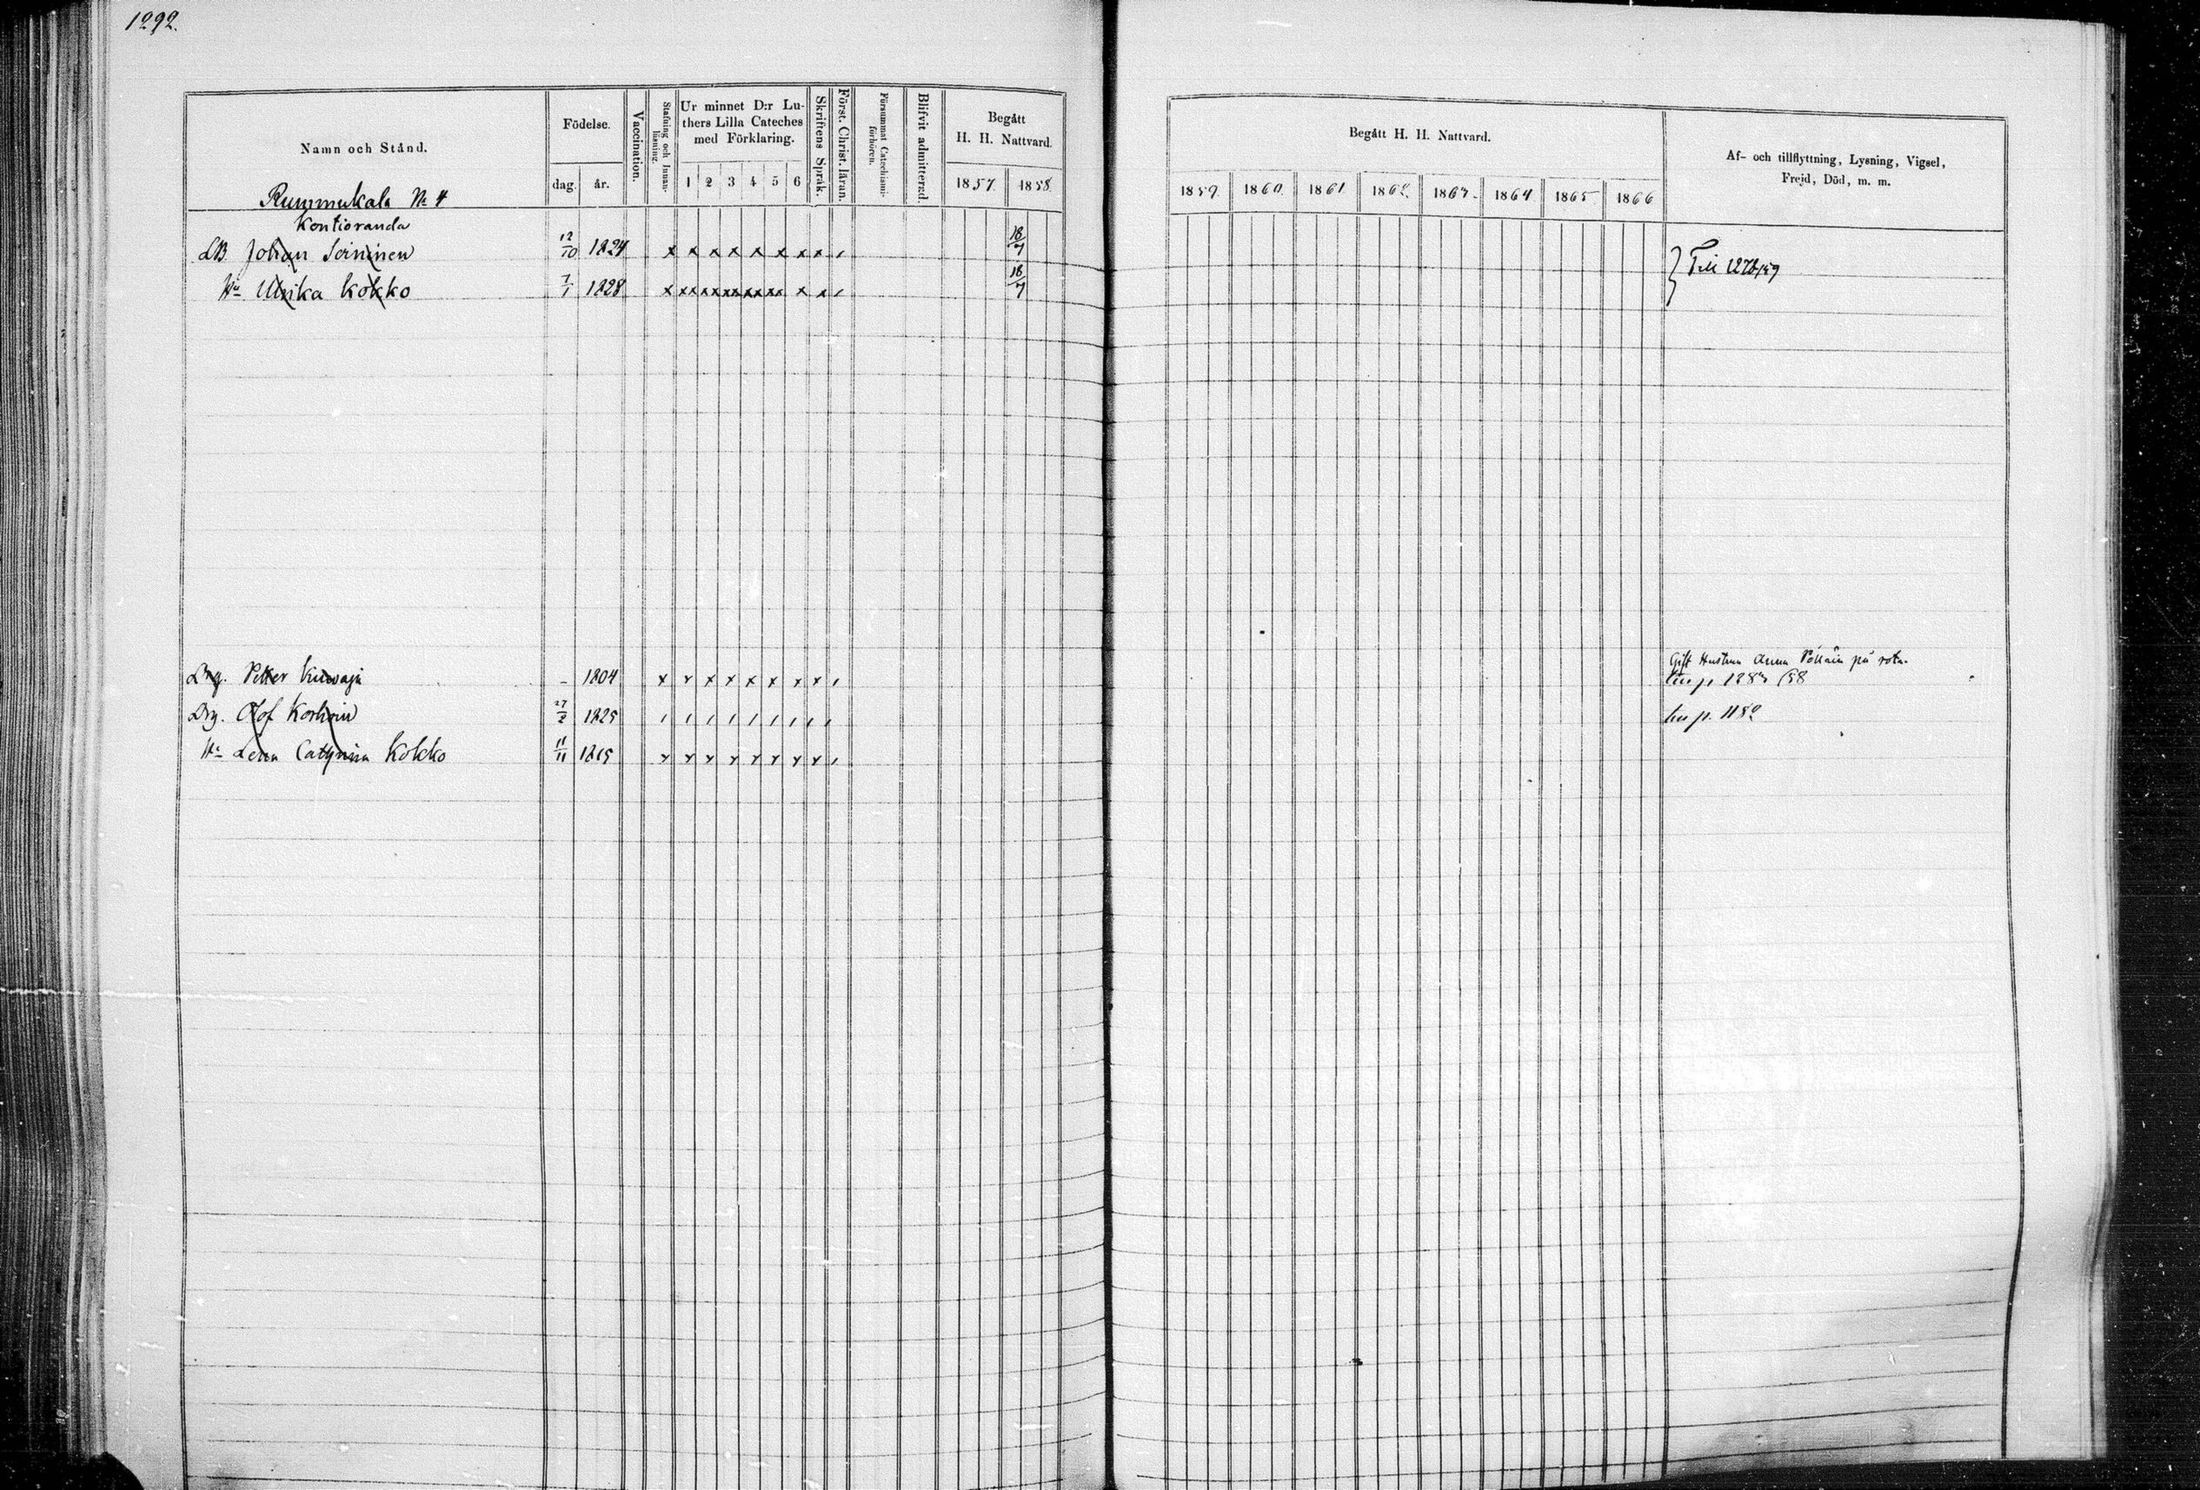 1292.
Namn och Stånd.
Födelse.
dag. år.
Vaccination.
Stafning och Innanläsning.
Ur minnet D:r Lu-
thers Lilla Cateches
med Förklaring.
1 2 3 4 5 6
Skriftens Språk.
Först. Christ. läran.
Försummat Catechismi-
förhören.
Blifvit admitterad.
Begått
H. H. Nattvard.
1857. 1858.
Begått H. H. Nattvard.
1859. 1860. 1861 1862. 1863. 1864 1865 1866
Af- och tillflyttning, Lysning, Vigsel,
Frejd, Död, m. m.
Rummukala No 4
Kontioranda
LB Johan Soininen 12/10 1824 x x x x x x x x / 18/7
Hu Ulrika Kokko 7/1 1828 x xx xx xx xx xx x x / 18/7
} Till 1278/59
Drg. Petter 1804 x x x x x x x x /
Gift Hustrun Anna på rota.
1283/58
Drg. Olof Korhoin 27/2 1825 / / / / / / / / /
p. 1182
Hu Lena Catharina Kokko 11/11 1815 x x x x x x x x /